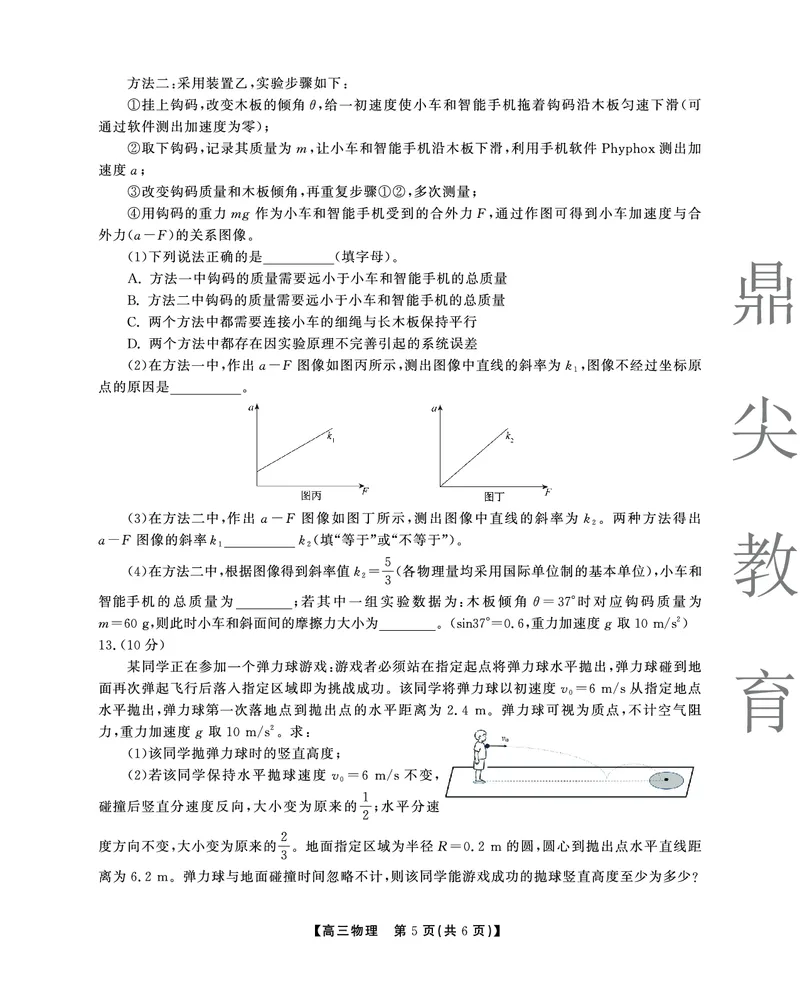 方法二:采用装置乙,实验步骤如下:
①挂上钩码,改变木板的倾角 θ,给一初速度使小车和智能手机拖着钩码沿木板匀速下滑(可
通过软件测出加速度为零);
②取下钩码,记录其质量为 m,让小车和智能手机沿木板下滑,利用手机软件 Phyphox 测出加
速度 a;
③改变钩码质量和木板倾角,再重复步骤①②,多次测量;
④用钩码的重力 mg 作为小车和智能手机受到的合外力 F,通过作图可得到小车加速度与合
外力(a-F)的关系图像。
(1)下列说法正确的是__________(填字母)。
A. 方法一中钩码的质量需要远小于小车和智能手机的总质量
B. 方法二中钩码的质量需要远小于小车和智能手机的总质量
C. 两个方法中都需要连接小车的细绳与长木板保持平行
D. 两个方法中都存在因实验原理不完善引起的系统误差
(2)在方法一中,作出 a-F 图像如图丙所示,测出图像中直线的斜率为 k₁,图像不经过坐标原
点的原因是__________。
a k₁ F 图丙
a k₂ F 图丁
(3)在方法二中,作出 a-F 图像如图丁所示,测出图像中直线的斜率为 k₂。两种方法得出
a-F 图像的斜率 k₁__________k₂(填“等于”或“不等于”)。
(4)在方法二中,根据图像得到斜率值 k₂=5/3(各物理量均采用国际单位制的基本单位),小车和
智能手机的总质量为________;若其中一组实验数据为:木板倾角 θ=37°时对应钩码质量为
m=60 g,则此时小车和斜面间的摩擦力大小为________。(sin37°=0.6,重力加速度 g 取 10 m/s²)
13.(10 分)
某同学正在参加一个弹力球游戏:游戏者必须站在指定起点将弹力球水平抛出,弹力球碰到地
面再次弹起飞行后落入指定区域即为挑战成功。该同学将弹力球以初速度 v₀=6 m/s 从指定地点
水平抛出,弹力球第一次落地点到抛出点的水平距离为 2.4 m。弹力球可视为质点,不计空气阻
力,重力加速度 g 取 10 m/s²。求:
(1)该同学抛弹力球时的竖直高度;
(2)若该同学保持水平抛球速度 v₀=6 m/s 不变,
碰撞后竖直分速度反向,大小变为原来的 1/2;水平分速
度方向不变,大小变为原来的 2/3。地面指定区域为半径 R=0.2 m 的圆,圆心到抛出点水平直线距
离为 6.2 m。弹力球与地面碰撞时间忽略不计,则该同学能游戏成功的抛球竖直高度至少为多少?
v₀
【高三物理 第 5 页(共 6 页)】
鼎
尖
教
育